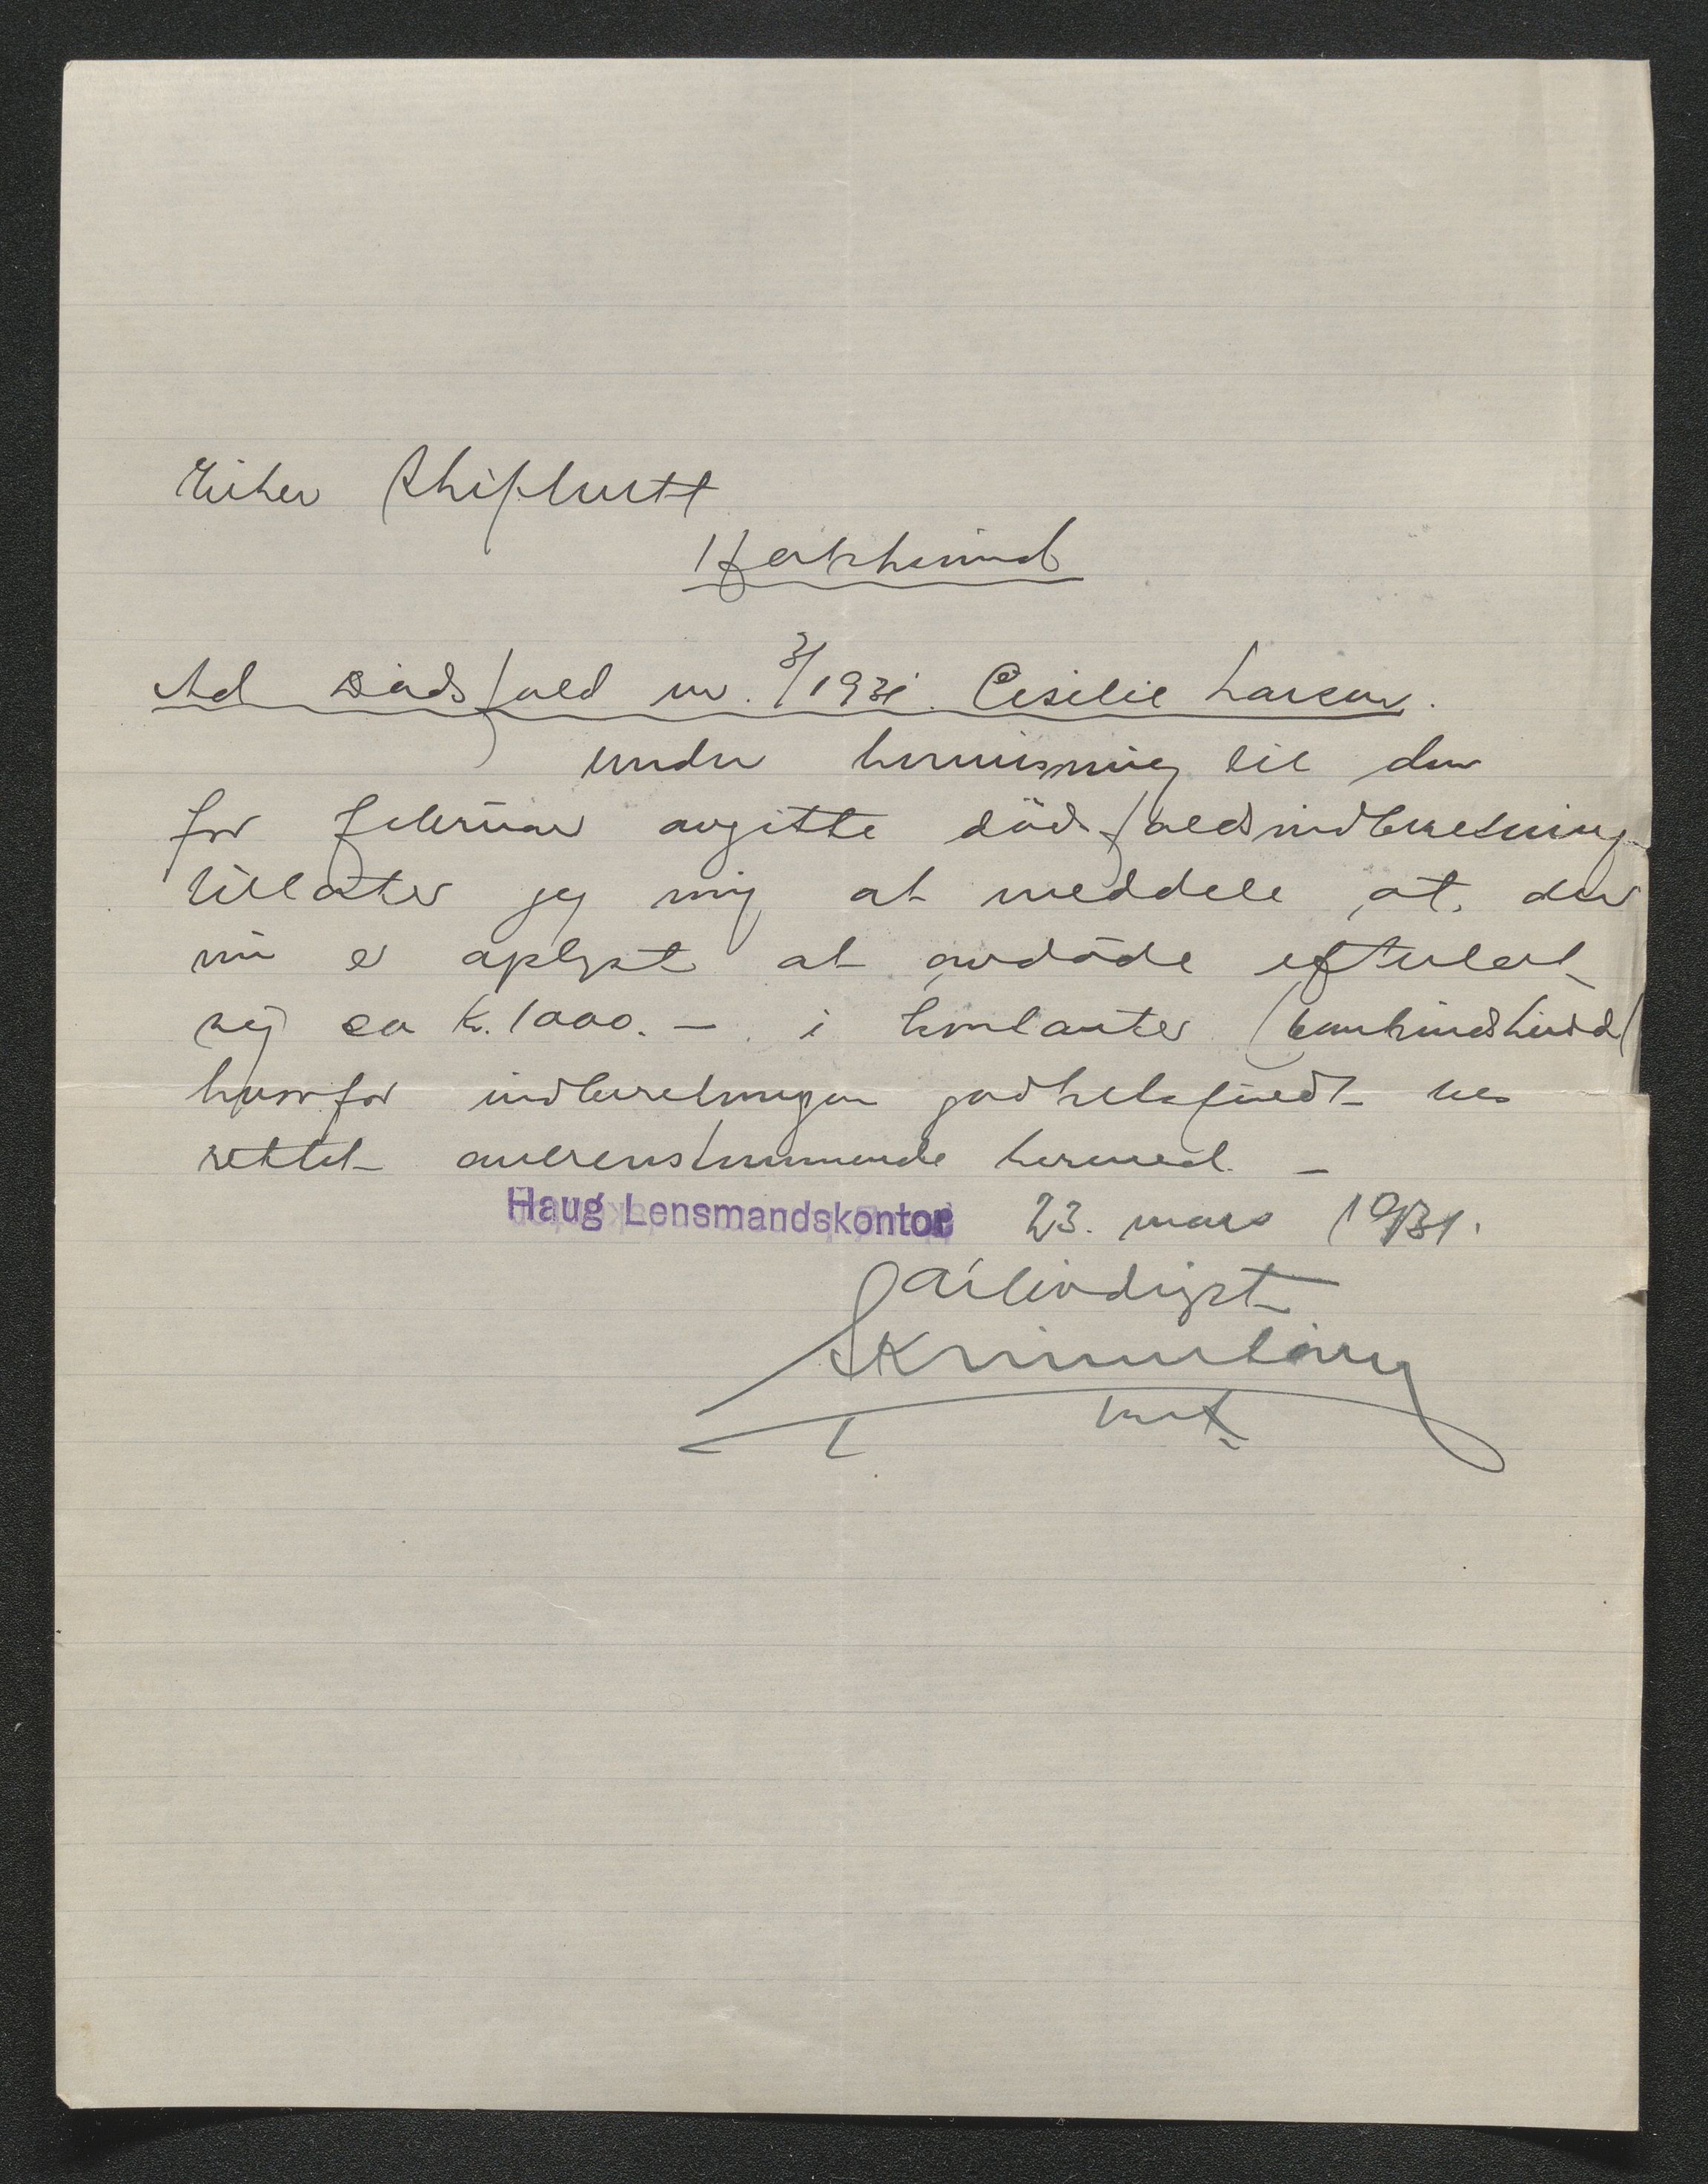 Eiker Skifterett
Hokksund
Ad dødsfald nr. 3/1931. Cesilie Larsen.
Under henvisning til den
for februar avgitte dødsfaldsindberetning
tillater jeg mig at meddele, at der
nu er oplyst at avdøde efterlot
sig ca kr. 1000.— i kontanter (bankindskudd)
hvorfor indberetningen godhetsfuldt bes
rettet overensstemmende hermed. —
Haug Lensmandskontor 23. mars 1931.
Ærbødigst